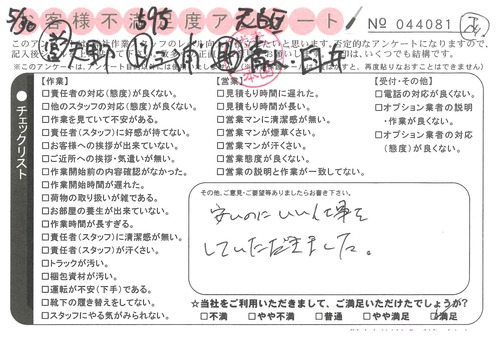 5/30
お客様不満足度アンケート
No 044081
チェックリスト
【作業】
□責任者の対応(態度)が良くない。
□他のスタッフの対応(態度)が良くない。
□作業を見ていて不安がある。
□責任者(スタッフ)に好感が持てない。
□お客様への挨拶が出来ていない。
□ご近所への挨拶・気遣いが無い。
□作業開始前の内容確認がなかった。
□作業開始時間が遅れた。
□荷物の取り扱いが雑である。
□お部屋の養生が出来ていない。
□作業時間が長すぎる。
□責任者(スタッフ)に清潔感が無い。
□責任者(スタッフ)が汗くさい。
□トラックが汚い。
□梱包資材が汚い。
□運転が不安(下手)である。
□靴下の履き替えをしてない。
□スタッフにやる気がみられない。
【営業】
□見積もり時間に遅れた。
□見積もり時間が長い。
□営業マンに清潔感が無い。
□営業マンが煙草くさい。
□営業マンが汗くさい。
□営業態度が良くない。
□営業の説明と作業が一致してない。
【受付・その他】
□電話の対応が良くない。
□オプション業者の説明
・作業が良くない。
□オプション業者の対応
(態度)が良くない。
その他、ご意見・ご要望等ありましたらお書き下さい。
安いのにいい仕事を
していただきました。
☆当社をご利用いただきまして、ご満足いただけたでしょうか?
□不満 □やや不満 □普通 □やや満足 □満足